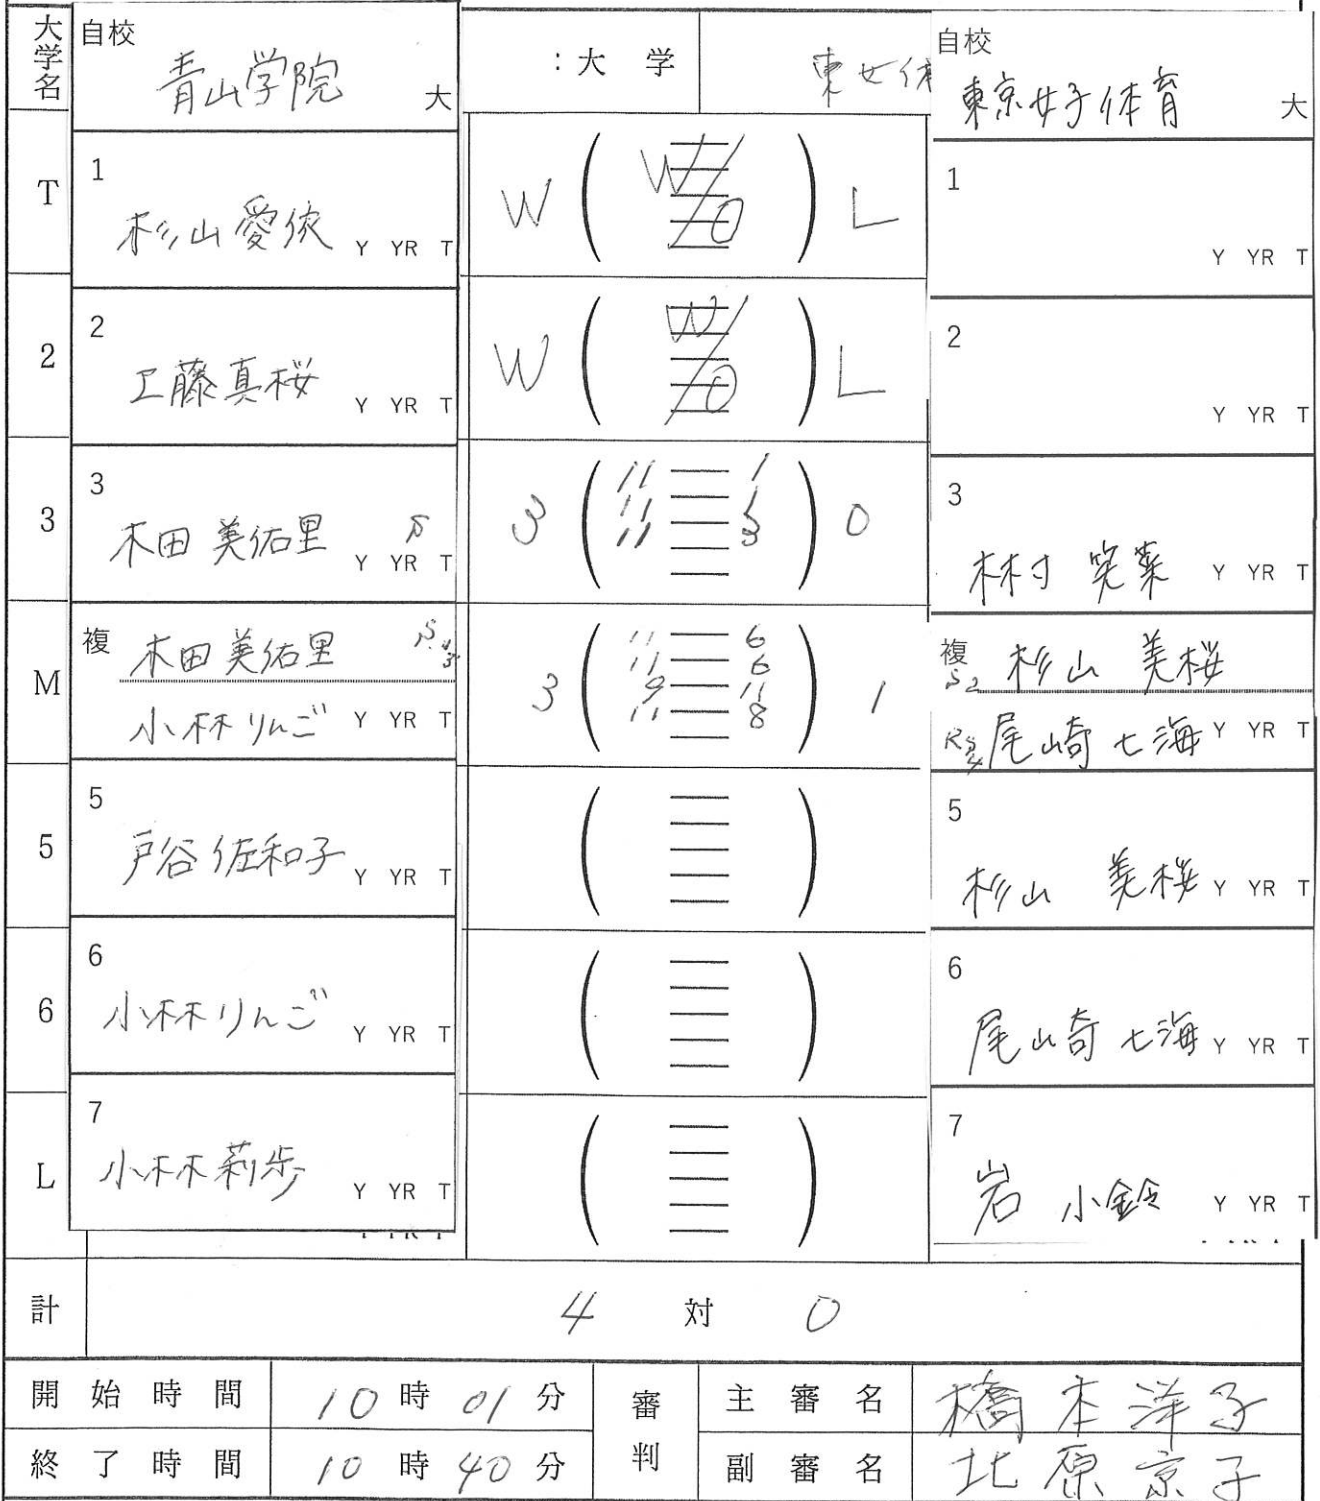 大学名 自校 青山学院 大 : 大 学 東女体 自校 東京女子体育 大
T 1 杉山愛依 Y YR T W ( W/O ) L 1 Y YR T
2 2 工藤真桜 Y YR T W ( W/O ) L 2 Y YR T
3 3 木田美佑里 Y YR T 3 ( 11 — 1 ) 0 3 林村 笑菜 Y YR T
11 — 1
11 — 3
M 複 木田美佑里 3 ( 11 — 6 ) 1 複 S2 杉山 美桜
11 — 6
9 — 11
11 — 8
小林りんご Y YR T 尾崎七海 Y YR T
5 5 戸谷佐和子 Y YR T ( ) 5 杉山 美桜 Y YR T
6 6 小林りんご Y YR T ( ) 6 尾崎七海 Y YR T
L 7 小林莉歩 Y YR T ( ) 7 岩 小鈴 Y YR T
計 4 対 0
開始時間 10時01分 審判 主審名 橋本洋子
終了時間 10時40分 副審名 北原京子